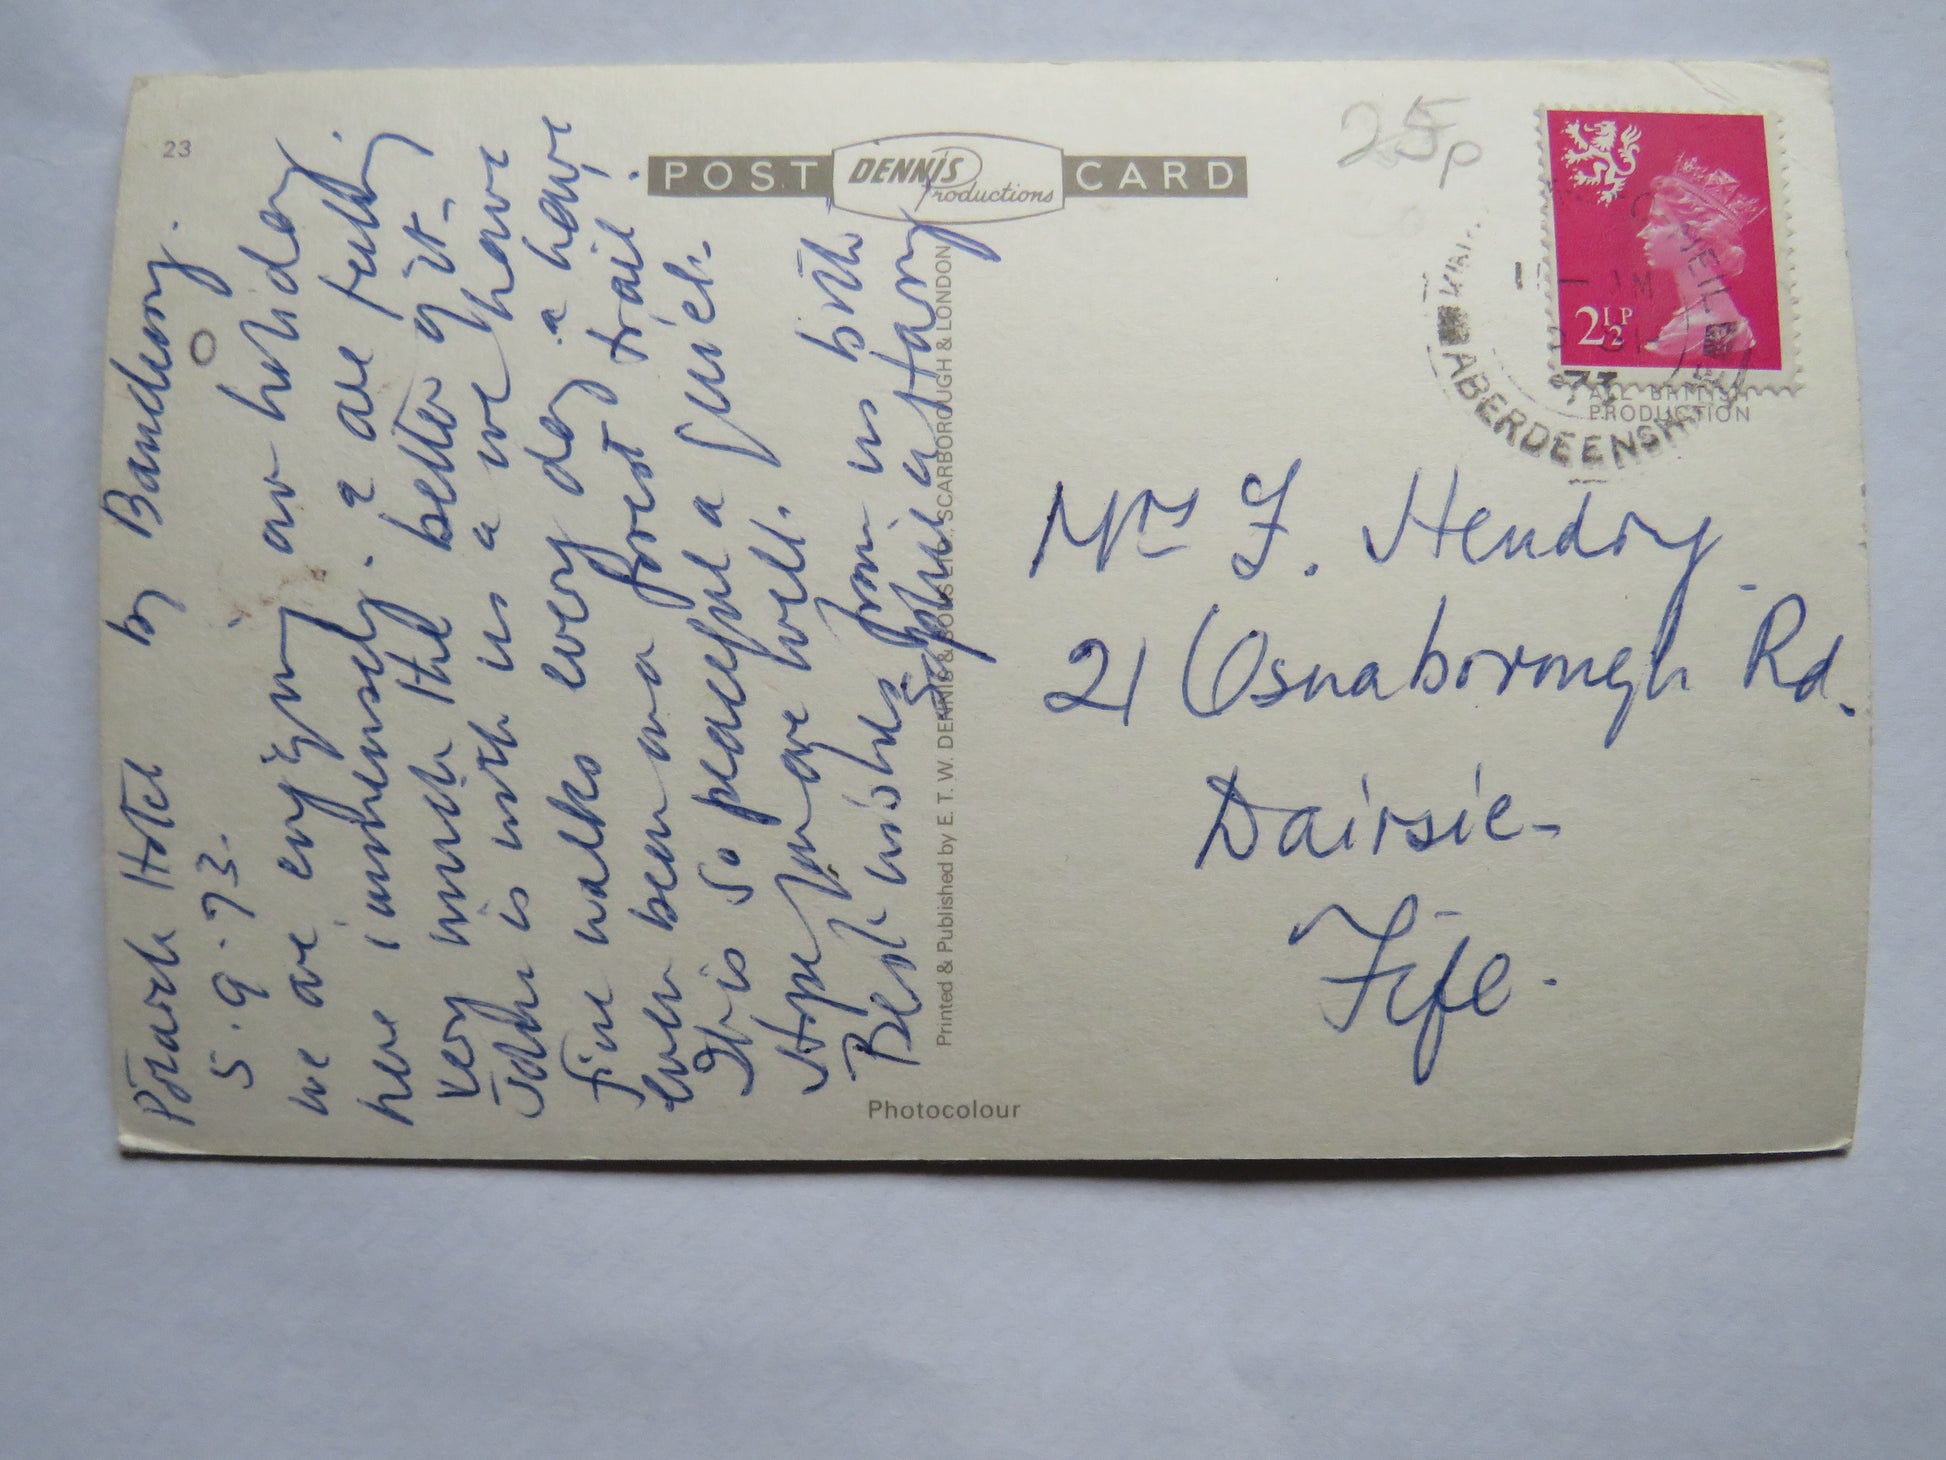 23
POST DENNIS Productions CARD
25p
2½P
ABERDEENSHIRE
ALL BRITISH
PRODUCTION
Potarch Hotel by Banchory.
5.9.73.
we are enjoying our holiday
here immensely. & are feeling
very much the better of it -
John is with us & we have
fine walks every day & have
even been on a forest trail.
It is so peaceful & quiet.
Hope you are well.
Best wishes from us both
Printed & Published by E. T. W. DENNIS & SONS LTD., SCARBOROUGH & LONDON
Photocolour
Mrs F. Hendry
21 Osnaborough Rd.
Dairsie-
Fife.